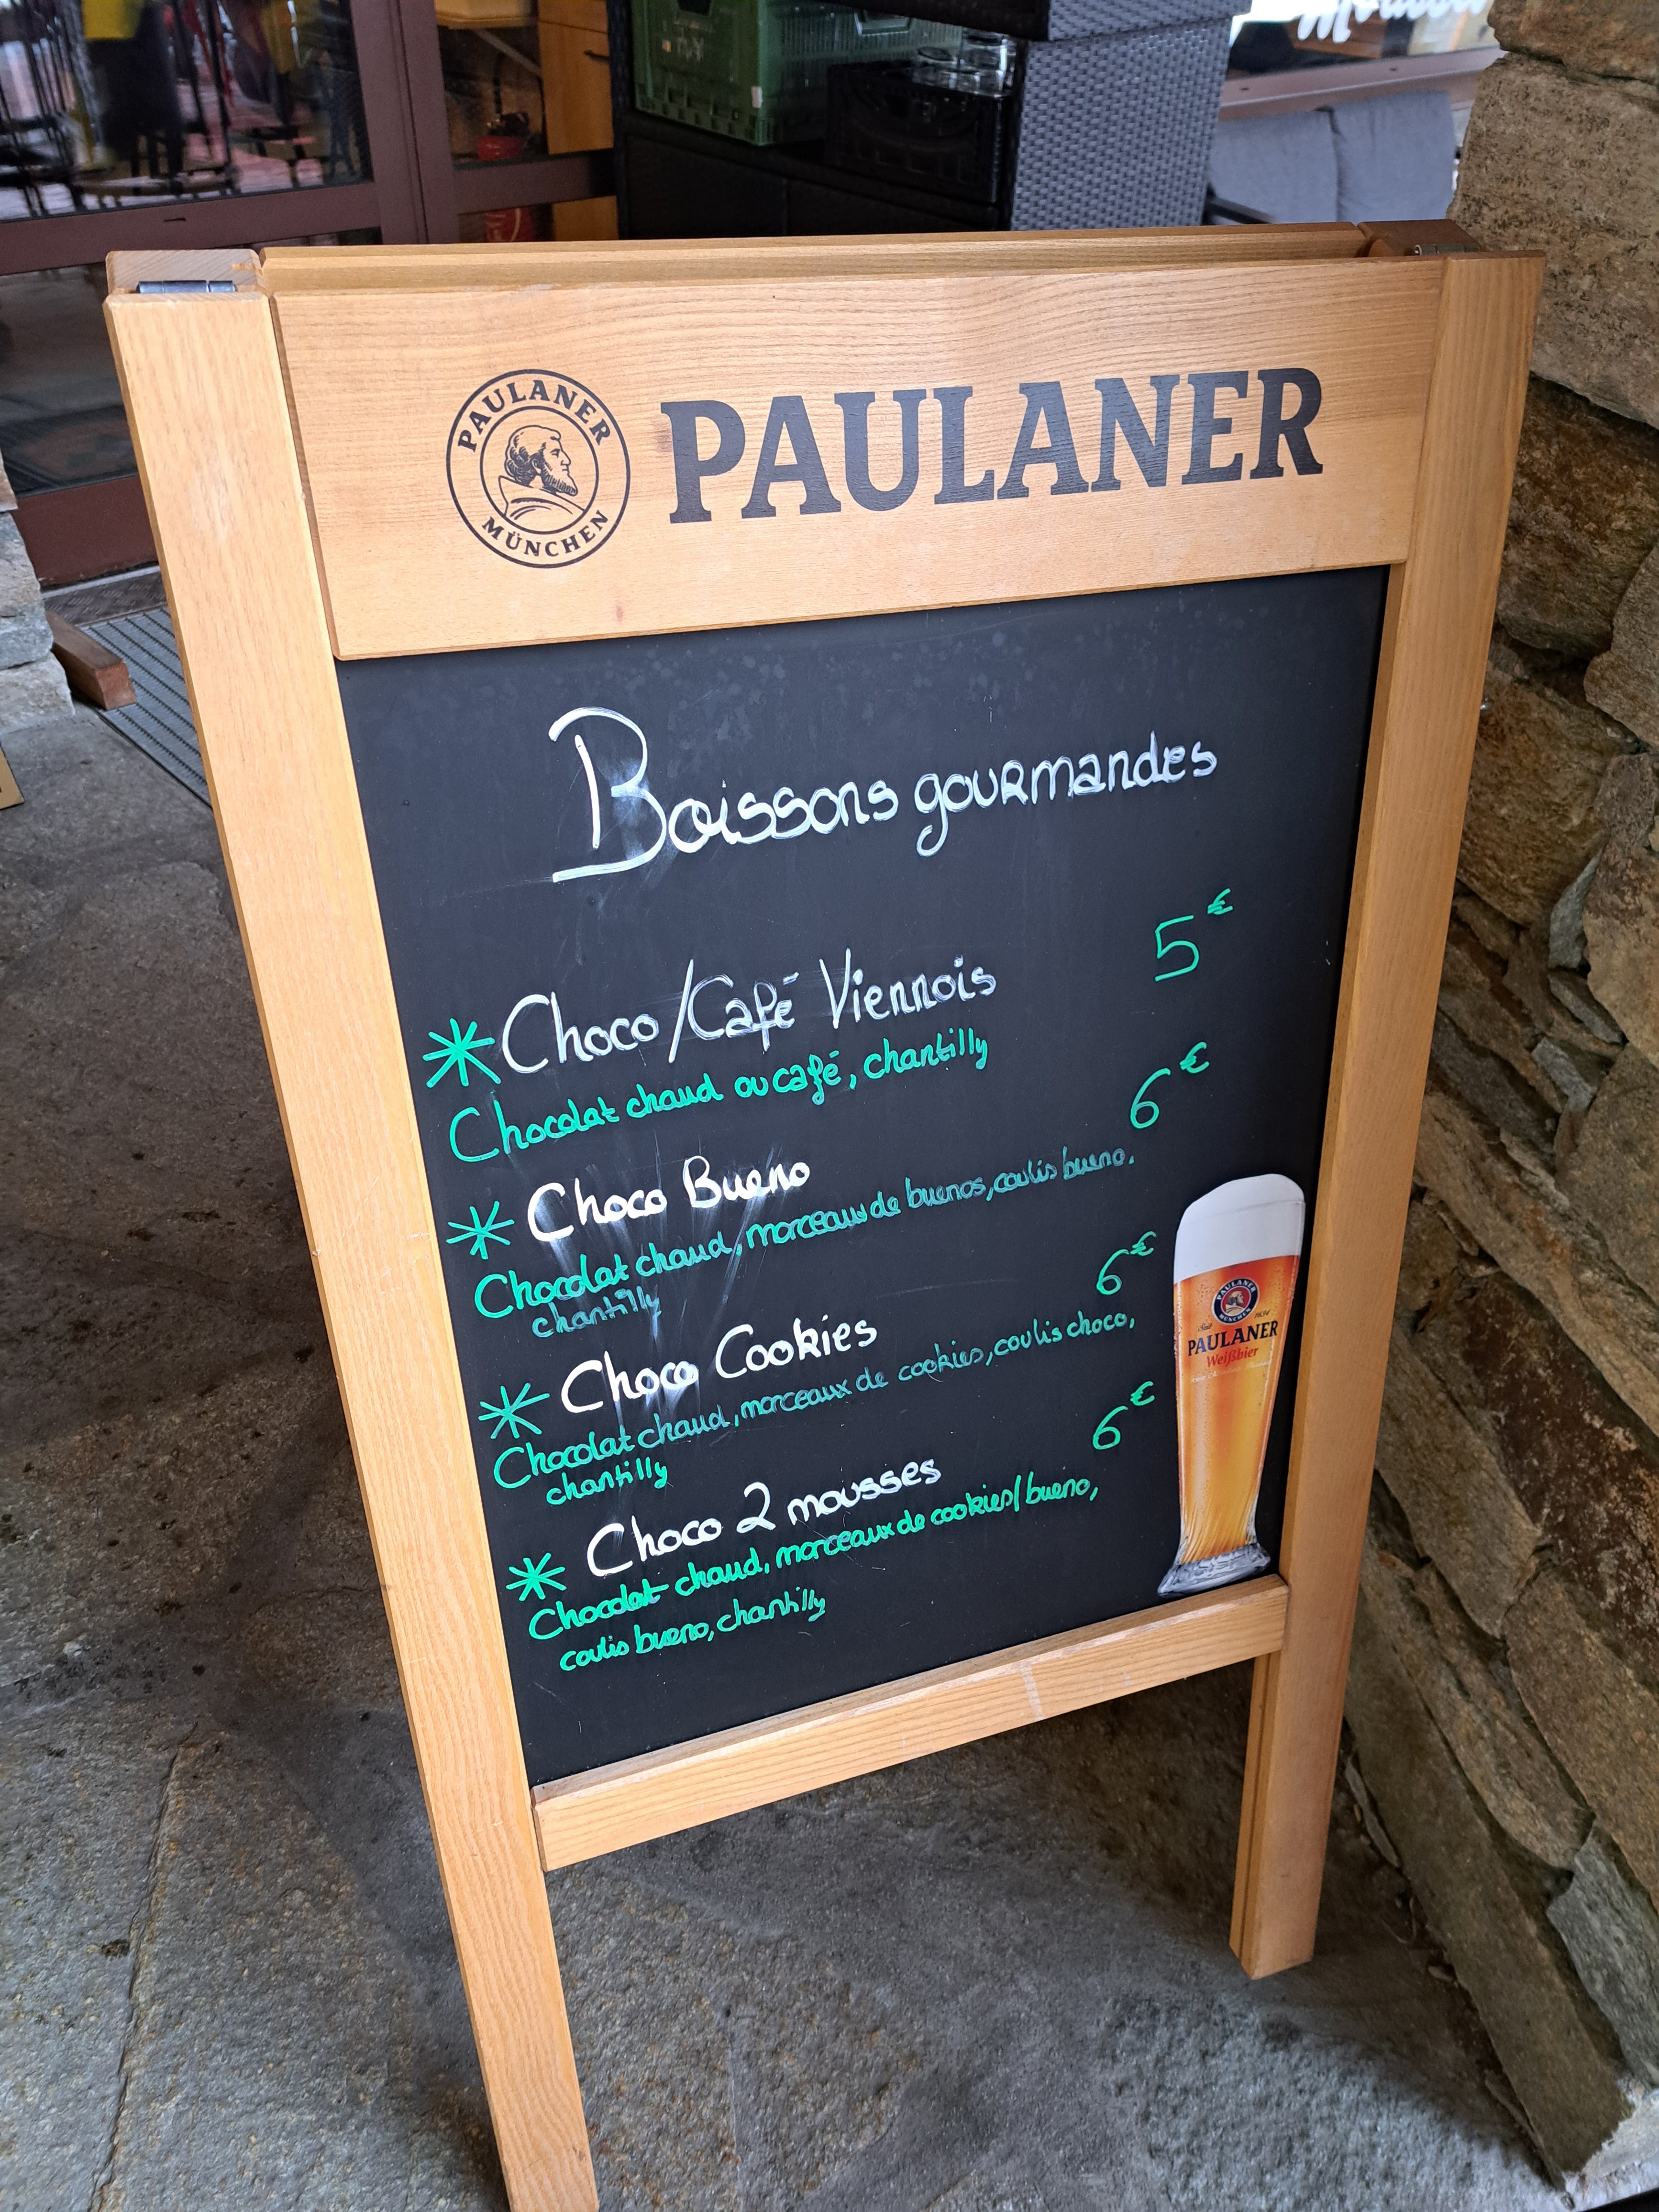 PAULANER
MÜNCHEN
PAULANER
Boissons gourmandes
5€
Choco/Café Viennois
Chocolat chaud ou café, chantilly
6€
Choco Bueno
Chocolat chaud, morceaux de buenos, coulis bueno,
chantilly
6€
Choco Cookies
Chocolat chaud, morceaux de cookies, coulis choco,
chantilly
6€
Choco 2 mousses
Chocolat chaud, morceaux de cookies/bueno,
coulis bueno, chantilly
PAULANER
MÜNCHEN
Seit 1634
PAULANER
Weißbier